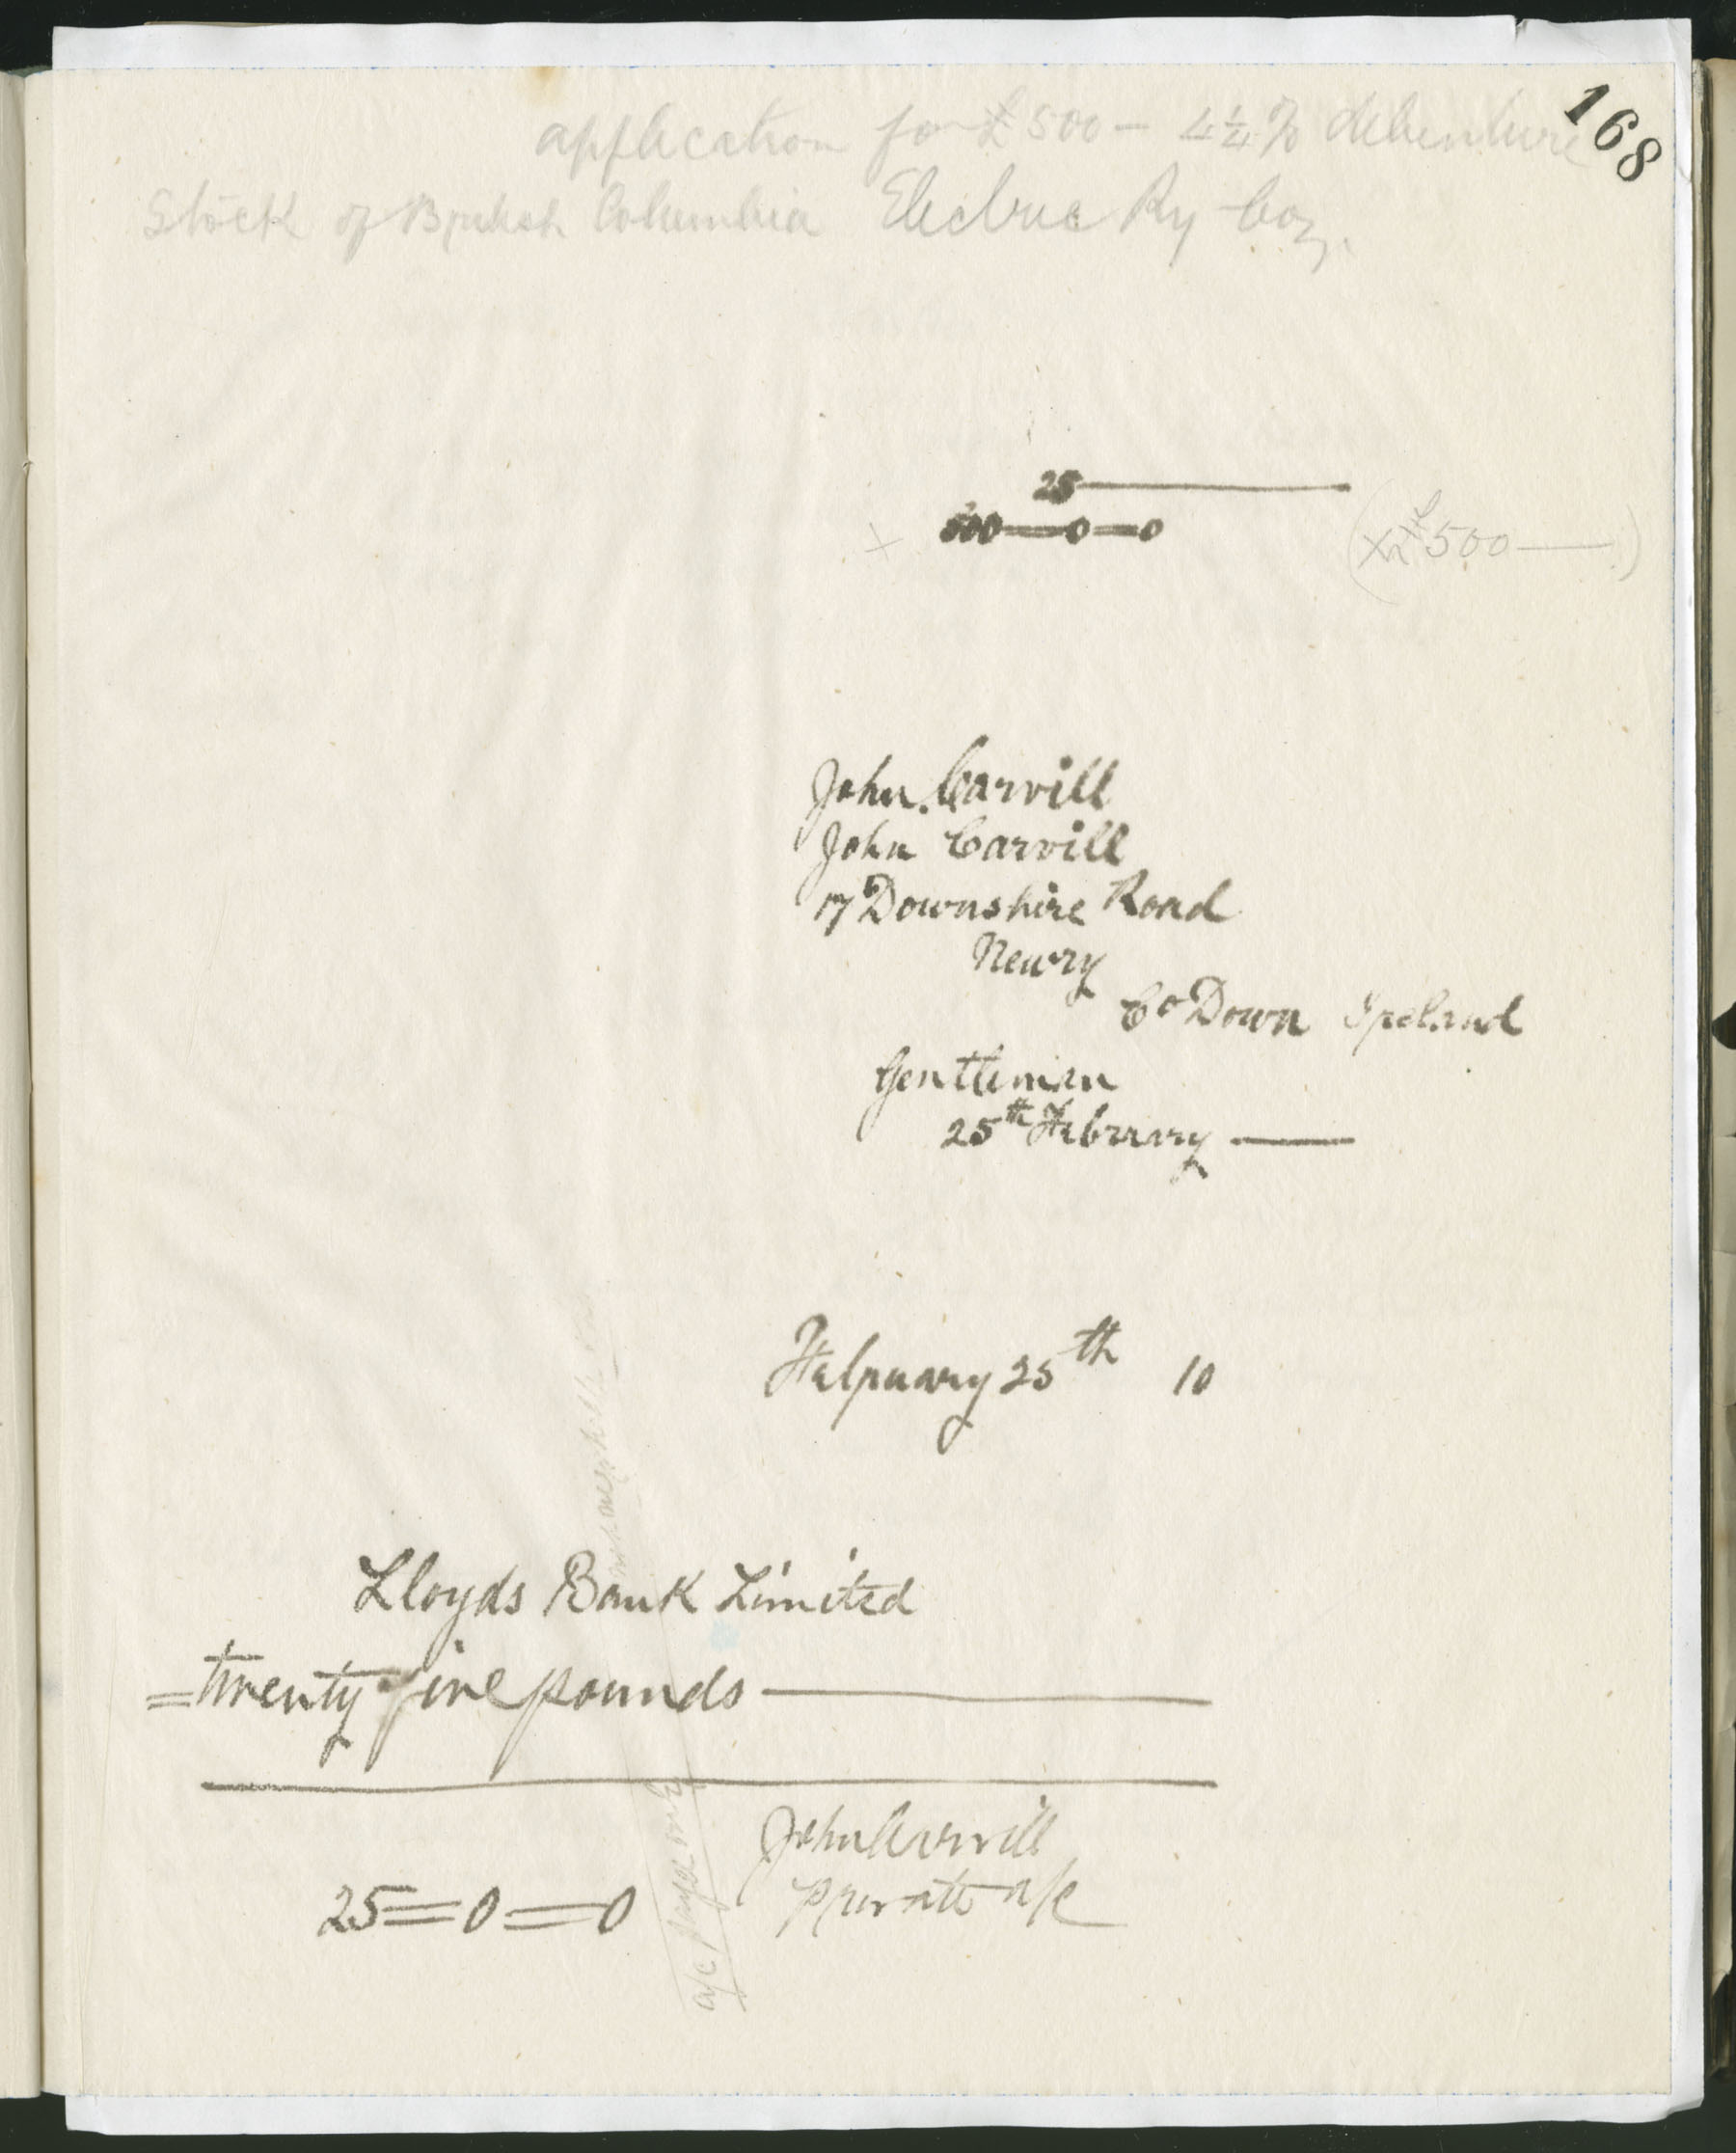 168
application for £500 — 4¼% debenture
Stock of British Columbia Electric Ry Coy.
25 ———
500 — 0 = 0
(£500 ——)
John Carvill
John Carvill
17 Downshire Road
Newry
Co Down Ireland
Gentleman
25th February ——
February 25th 10
Lloyds Bank Limited
= twenty five pounds ———
John Carvill
25 = 0 = 0
private a/c
a/c payee only